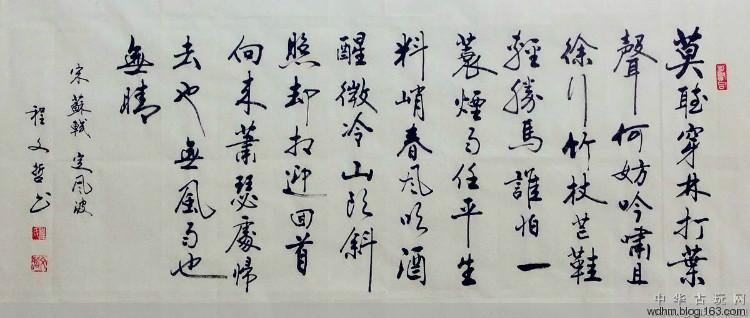 莫聽穿林打葉
聲何妨吟嘯且
徐行竹杖芒鞋
輕勝馬誰怕一
蓑煙雨任平生
料峭春風吹酒
醒微冷山頭斜
照却相迎回首
向來蕭瑟處歸
去也無風雨也
無晴
宋 蘇軾 定風波
程文哲书
中华古玩网
wdhm.blog.163.com